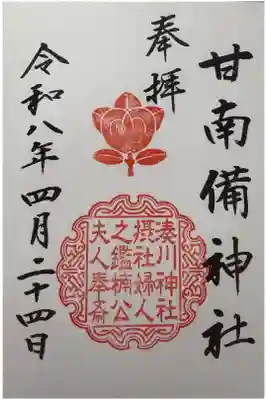 奉拝
甘南備神社
湊川神社
摂社婦人
之鑑楠公
夫人奉斎
令和八年四月二十四日